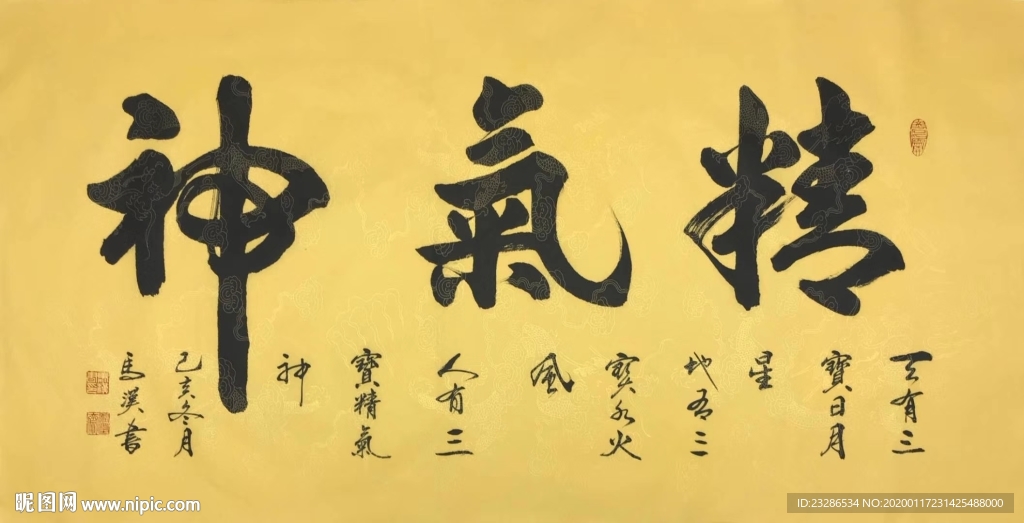 精氣神
天有三
寶日月
星
地有三
寶水火
風
人有三
寶精氣
神
己亥冬月
馬漢書
昵图网 www.nipic.com
ID:23286534 NO:20200117231425488000